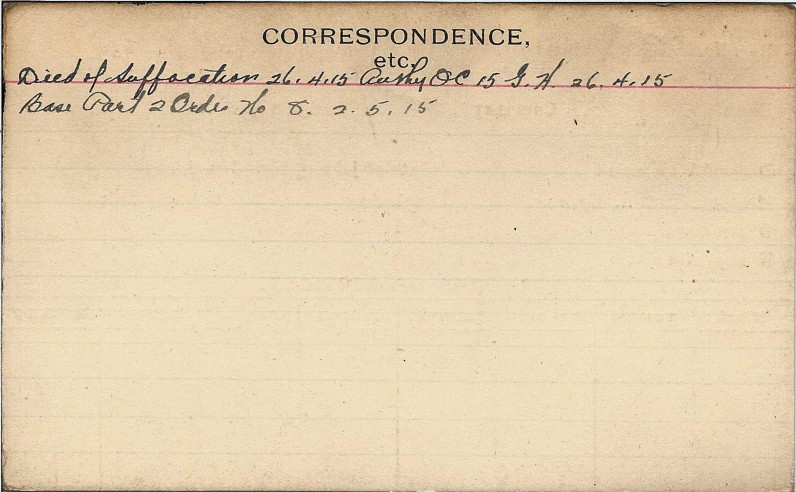 CORRESPONDENCE,
etc.
Died of Suffocation 26.4.15 Authy OC 15 G.H. 26.4.15
Base Part 2 Order No 8. 2.5.15